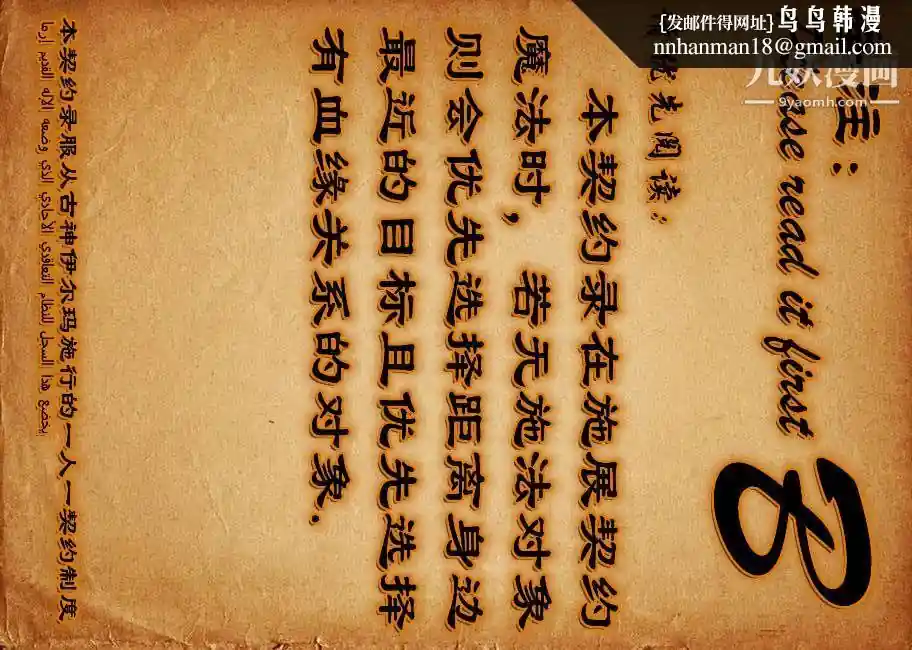 [发邮件得网址] 鸟鸟韩漫
nnhanman18@gmail.com
九妖漫画
9yaomh.com
注:
read it first
先阅读:
本契约录在施展契约
魔法时，若无施法对象
则会优先选择距离身边
最近的目标且优先选择
有血缘关系的对象.
本契约录服从古神伊尔玛施行的一人一契约制度
يخضع هذا السجل للنظام التعاقدي الأحادي الذي وضعه الإله القديم إرما